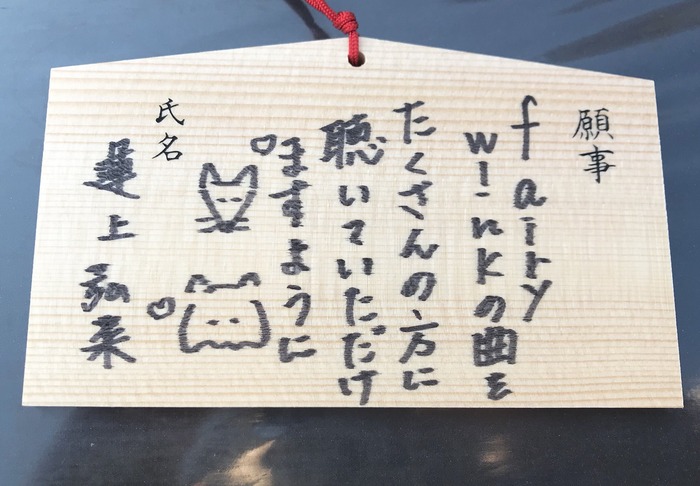 願事
fairy
winkの曲を
たくさんの方に
聴いていただけ
ますように
氏名
蓮上弘来